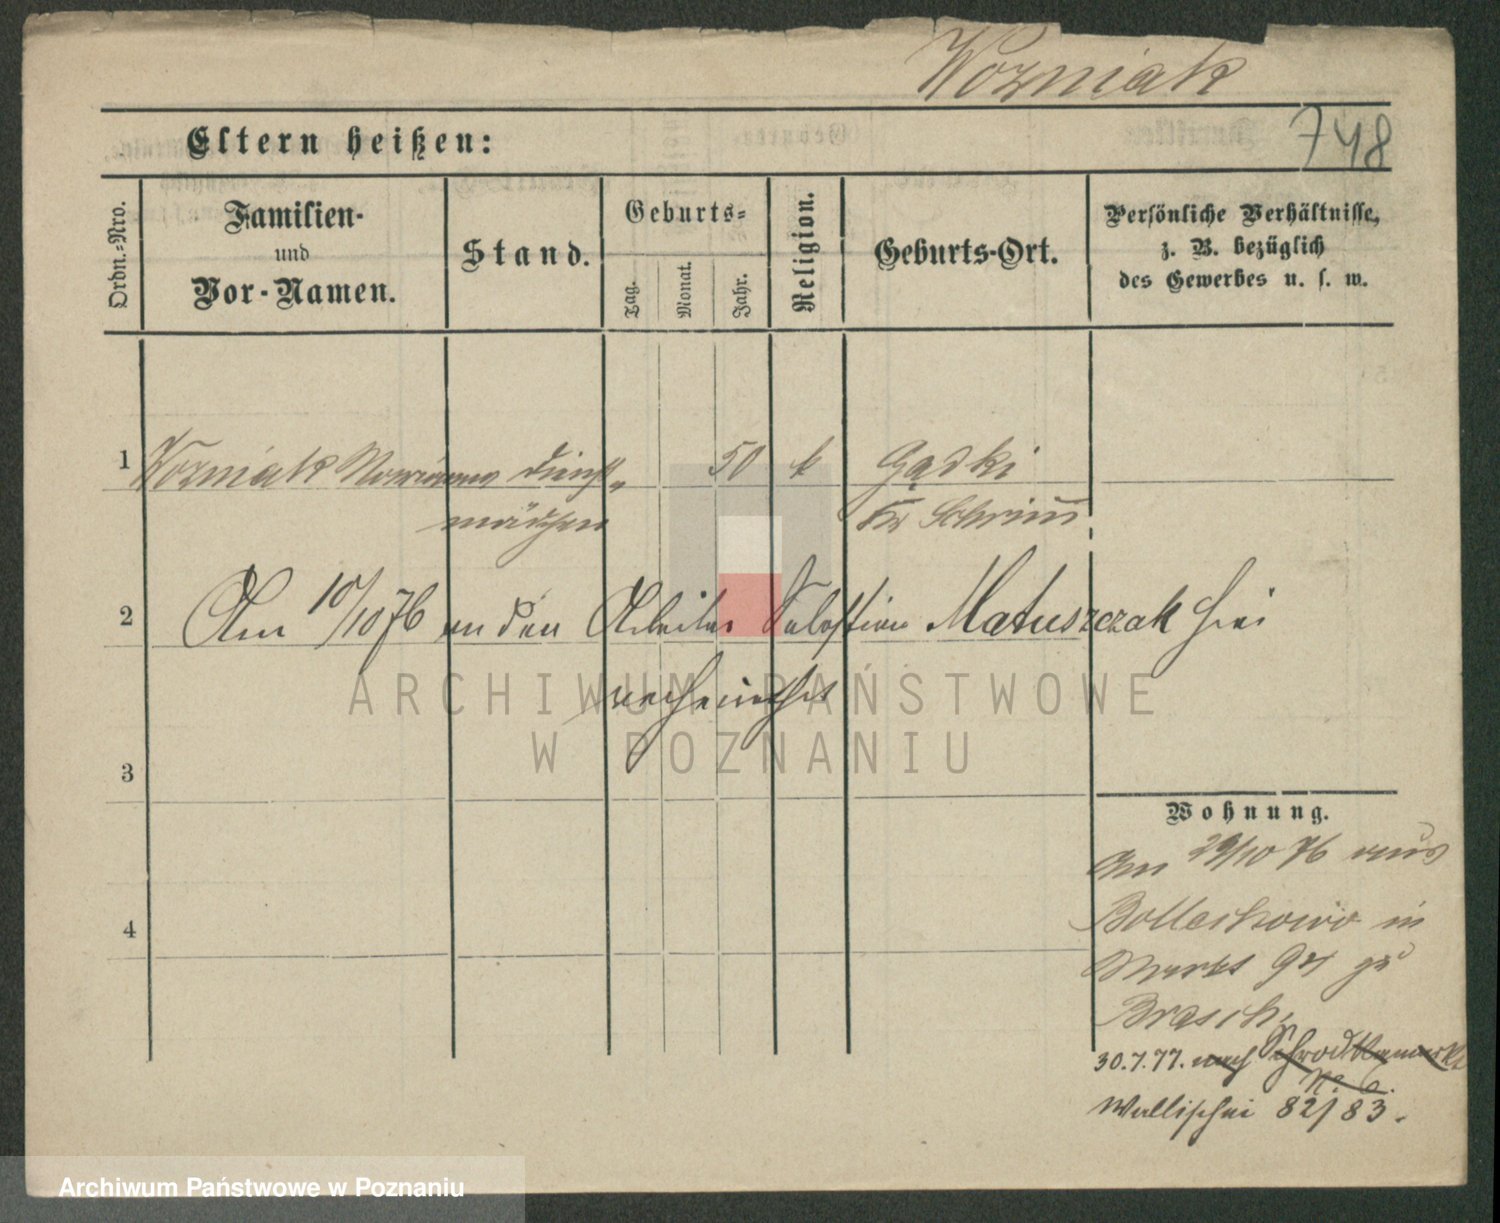 Wozniak
748
Eltern heißen:
Ordn.-Nro.
Familien-
und
Vor-Namen.
Stand.
Geburts-
Tag.
Monat.
Jahr.
Religion.
Geburts-Ort.
Persönliche Verhältnisse,
z. B. bezüglich
des Gewerbes u. s. w.
1 Wozniak Marianna Dienst- 50 k Gądki
mädchen Kr Schrimm
2 Am 10/10 76 an den Arbeiter Matuszczak hier
verheirathet
ARCHIWUM PAŃSTWOWE
W POZNANIU
3
Wohnung.
Am 29/10 76 aus
4
in
Markt 94 zu
Brasch.
30.7.77. nach Schrodkamarkt
No 6.
Wallischei 82/83.
Archiwum Państwowe w Poznaniu